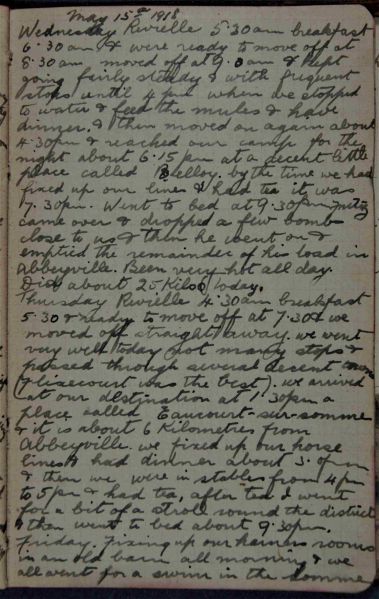 May 15th 1918
Wednesday Reveille 5.30am breakfast
6.30am & were ready to move off at
8.30am moved off at 9.0am & kept
going fairly steady & with frequent
stops until 4 pm when we stopped
to water & feed the mules & have
dinner. & then moved on again about
4.30pm & reached our camp for the
night about 6.15pm at a decent little
place called Belloy. by the time we had
fixed up our lines & had tea it was
7.30pm. Went to bed at 9.30pm
came over & dropped a few bomb
close to us & then he went on &
emptied the remainder of his load in
Abbeyville. Been very hot all day.
Did about 25 Kilos today.
Thursday Reveille 4.30am breakfast
5.30 & ready to move off at 7.30 & we
moved off straight away. we went
very well today not many stops &
passed through several decent towns
(Flixecourt was the best). we arrived
at our destination at 1.30pm a
place called Eaucourt-sur-somme
& it is about 6 Kilometres from
Abbeyville. we fixed up our horse
lines & had dinner about 3.0pm
& then we were in stables from 4pm
to 5pm & had tea, after tea I went
for a bit of a stroll round the district
& then went to bed about 9.30pm.
Friday. Fixing up our harness rooms
in an old barn all morning & we
all went for a swim in the Somme